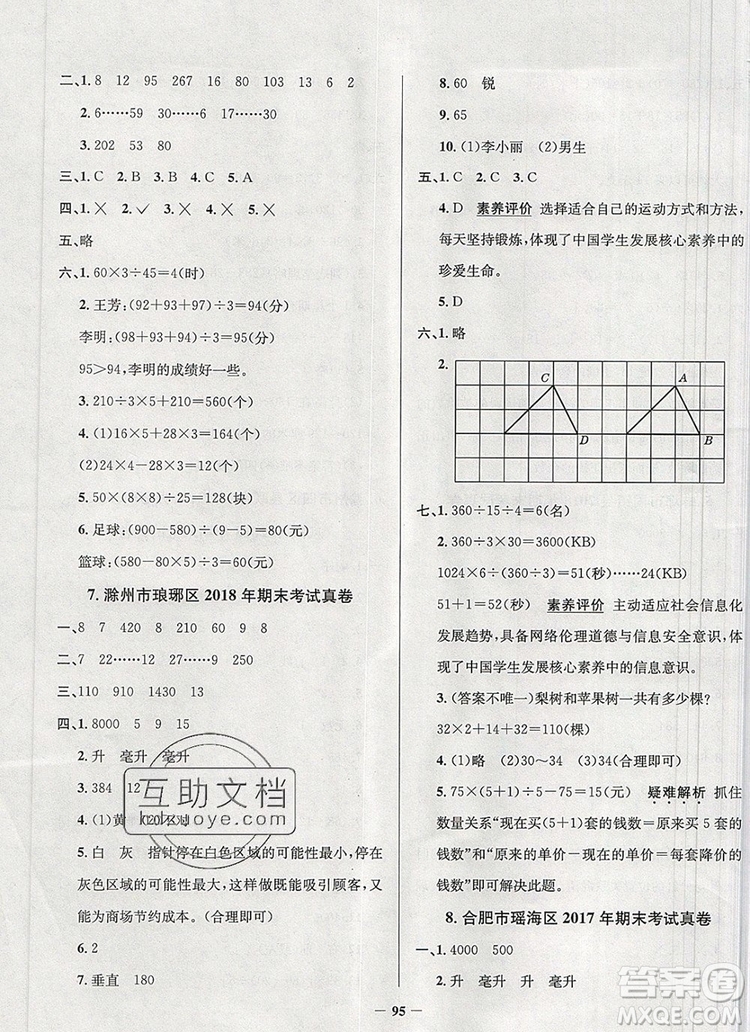 二、1. 8 12 95 267 16 80 103 13 6 2
2. 6……59 30……6 17……30
3. 202 53 80
三、1. C 2. B 3. C 4. C 5. A
四、1. ╳ 2. ✓ 3. ╳ 4. ╳ 5. ╳
五、略
六、1. 60×3÷45=4(时)
2. 王芳：(92+93+97)÷3=94(分)
李明：(94+98+93)÷3=95(分)
95>94，李明的成绩好一些。
3. 210÷3×5+210=560(个)
4. (1)16×5÷2÷4=10(个)
(2)24×2-18×2=12(个)
5. 50×(8×8)÷25=128(块)
6. 足球：(900-580)÷4=80(元)
篮球：(580-80×5)÷3=60(元)
7. 滁州市琅琊区 2018 年期末考试真卷
一、8 7 420 8 210 60 9 8
二、7 22……17 27……9 250
三、110 910 1430 13
四、1. 8000 5 9 15
2. 升 毫升 毫升
3. 384 12
4. (1)黄
5. 白 灰 指针停在白色区域的可能性最小，停在
灰色区域的可能性最大，这样既能吸引顾客，又能
为商场节约成本。(合理即可)
6. 2
7. 垂直 180
8. 60 锐
9. 65
10. (1)李小丽 (2)男生
五、1. C 2. C 3. C
4. D 素养评价 选择适合自己的运动方式和方法，
每天坚持锻炼，体现了中国学生发展核心素养中的
珍爱生命。
5. D
六、1. 略
2.
C A
D B
七、1. 360÷15÷4=6(名)
2. 360÷3×30=3600(KB)
1024×6÷(360÷3)=51(秒)……24(KB)
51+1=52(秒) 素养评价 主动适应社会信息化
发展趋势，具备网络伦理道德与信息安全意识，体
现了中国学生发展核心素养中的信息意识。
3. (答案不唯一)梨树和苹果树一共有多少棵？
32×2+14×4=120(棵)
4. (1)略 (2)30~34 (3)34(合理即可)
5. 75×(5+1)÷5-75=15(元) 疑难解析 抓住
数量关系“现在买(5+1)套的钱数=原来买 5 套的
钱数”“原来的单价-现在的单价=每套降价的
钱数”即可解决此题。
8. 合肥市瑶海区 2017 年期末考试真卷
一、1. 4000 500
2. 升 毫升 毫升 升
95
互助文档
答案圈
MXQE.COM